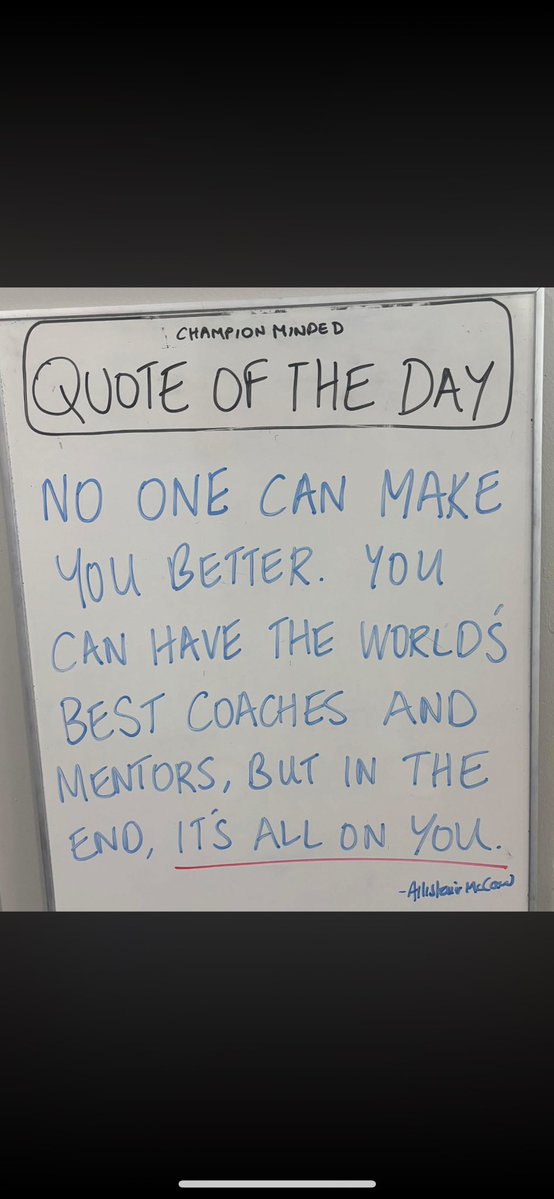 CHAMPION MINDED
QUOTE OF THE DAY
NO ONE CAN MAKE
YOU BETTER. YOU
CAN HAVE THE WORLD'S
BEST COACHES AND
MENTORS, BUT IN THE
END, IT'S ALL ON YOU.
-Allistair McCaw